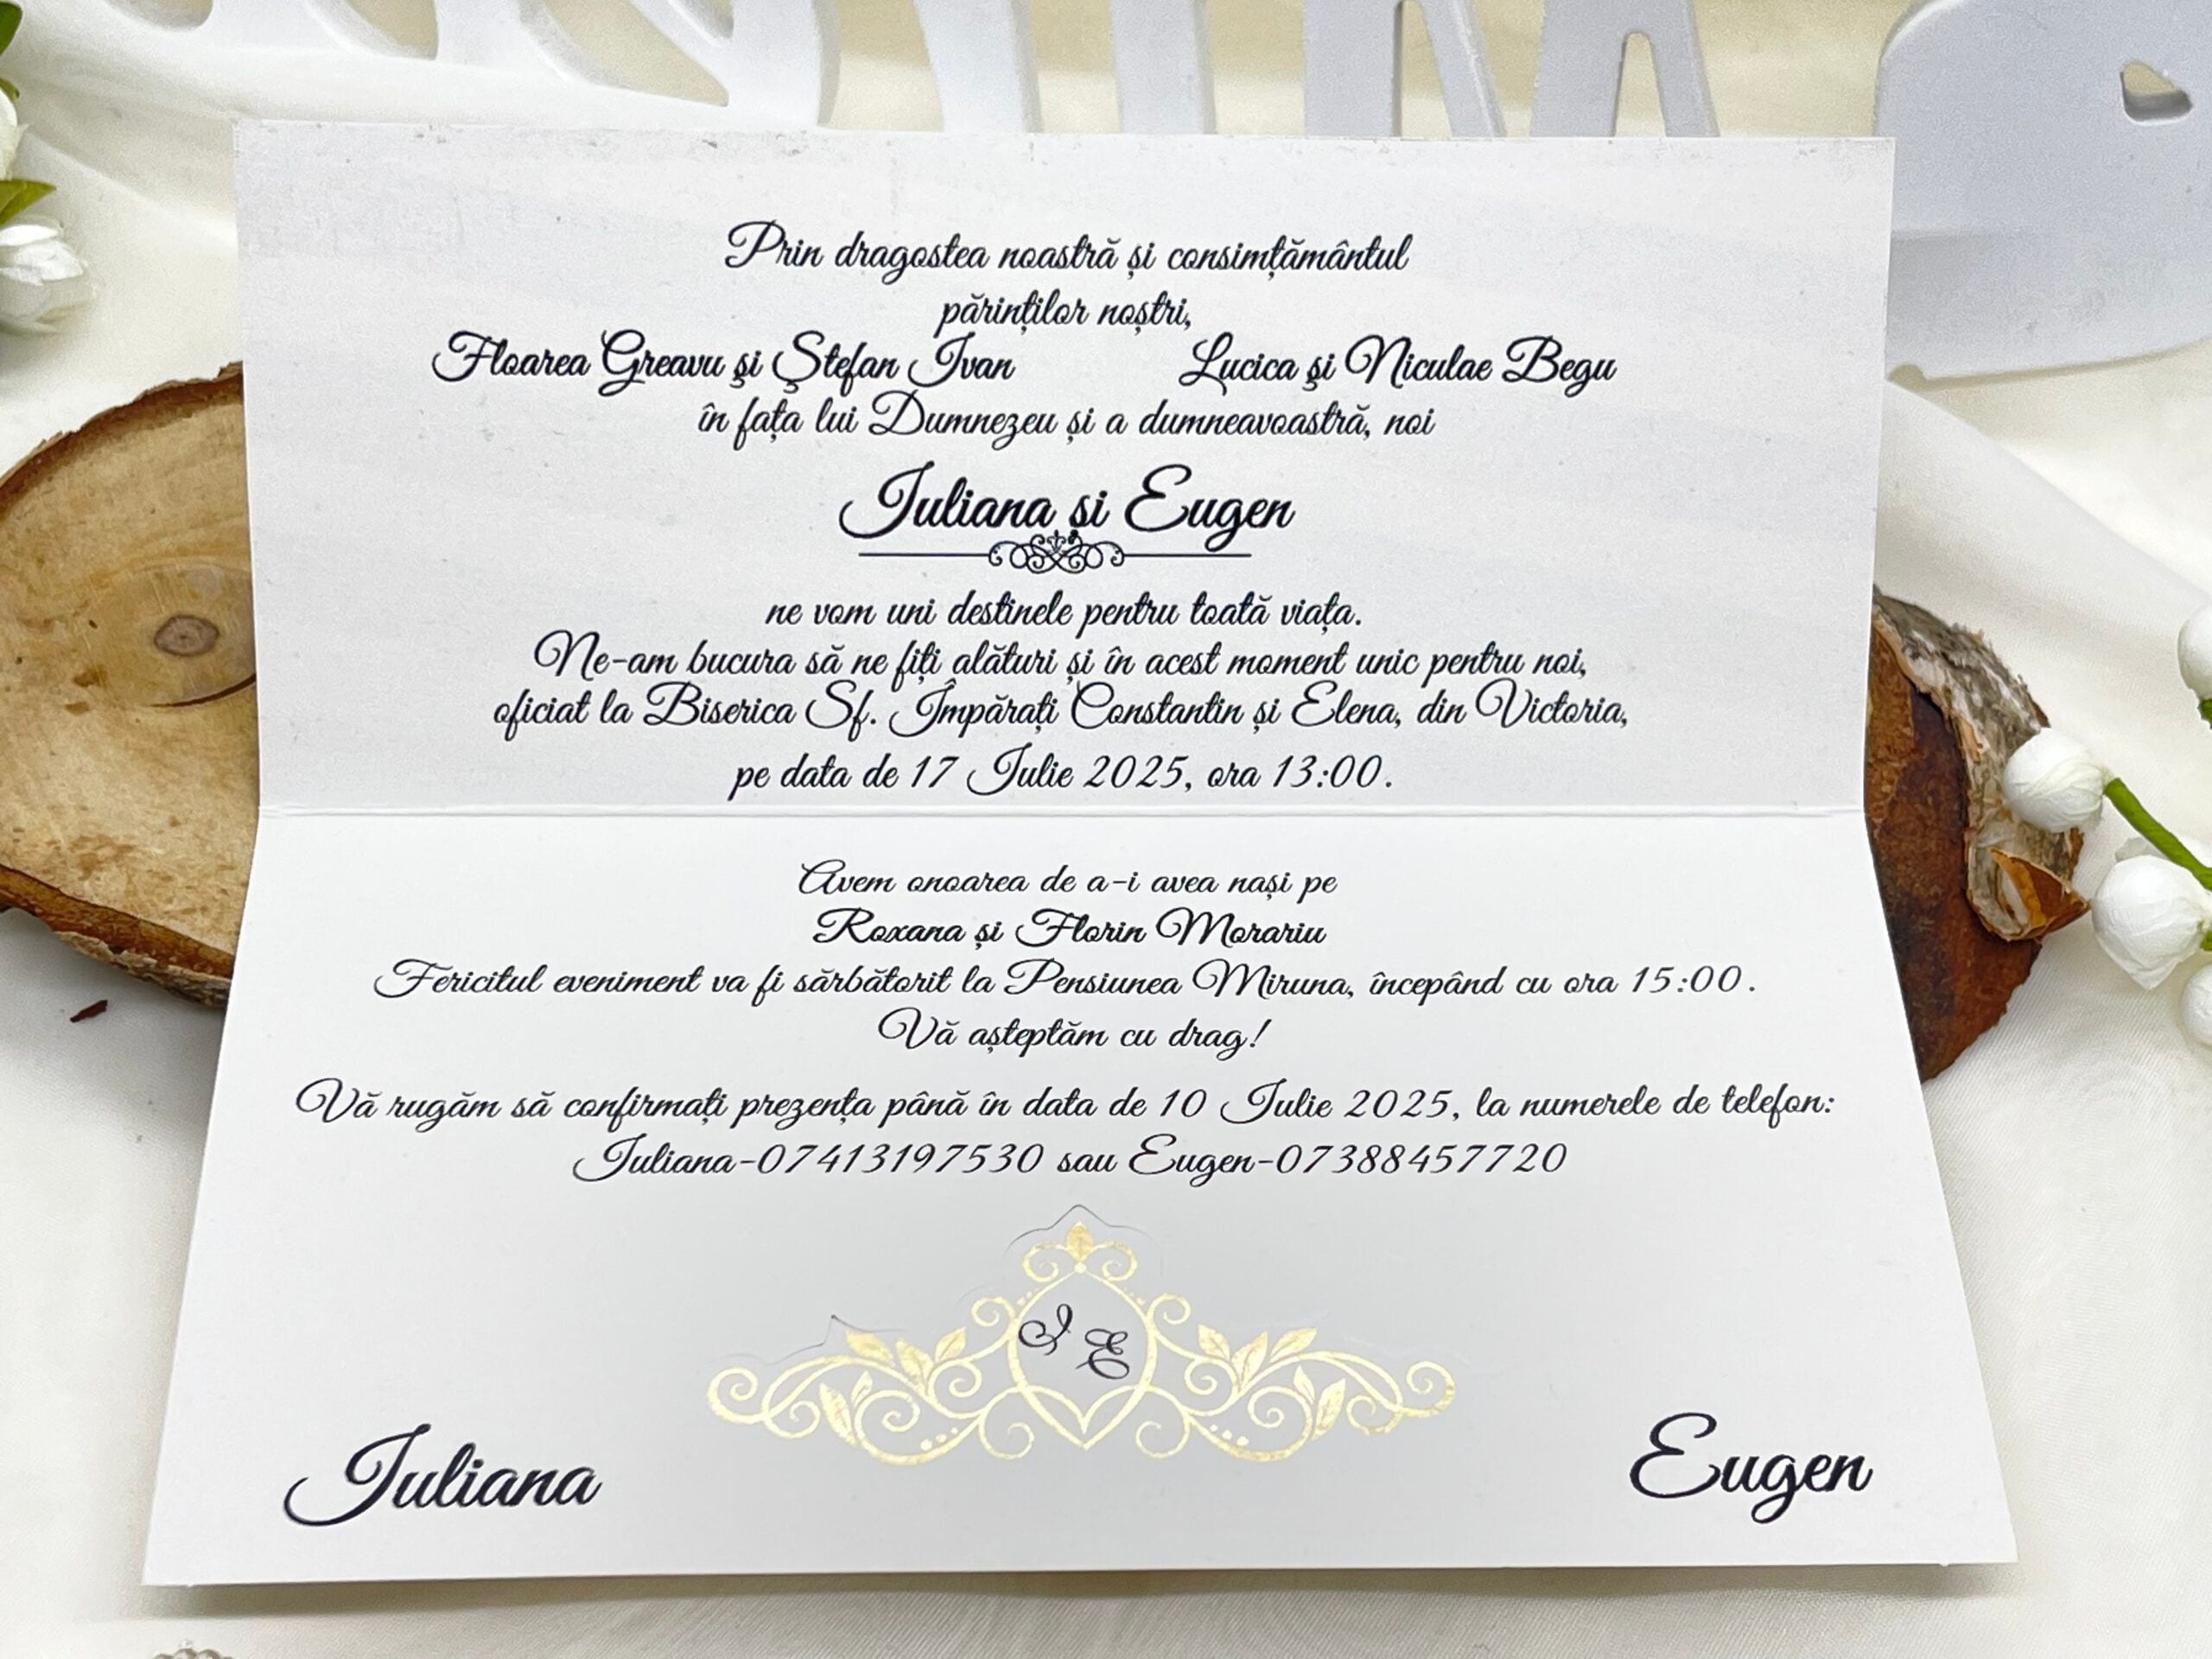 Prin dragostea noastră și consimțământul
părinților noștri,
Floarea Greavu şi Ştefan Ivan Lucica şi Niculae Begu
în fața lui Dumnezeu și a dumneavoastră, noi
Iuliana și Eugen
ne vom uni destinele pentru toată viața.
Ne-am bucura să ne fiți alături și în acest moment unic pentru noi,
oficiat la Biserica Sf. Împărați Constantin și Elena, din Victoria,
pe data de 17 Iulie 2025, ora 13:00.
Avem onoarea de a-i avea nași pe
Roxana și Florin Morariu
Fericitul eveniment va fi sărbătorit la Pensiunea Miruna, începând cu ora 15:00.
Vă așteptăm cu drag!
Vă rugăm să confirmați prezența până în data de 10 Iulie 2025, la numerele de telefon:
Iuliana-07413197530 sau Eugen-07388457720
I E
Iuliana Eugen